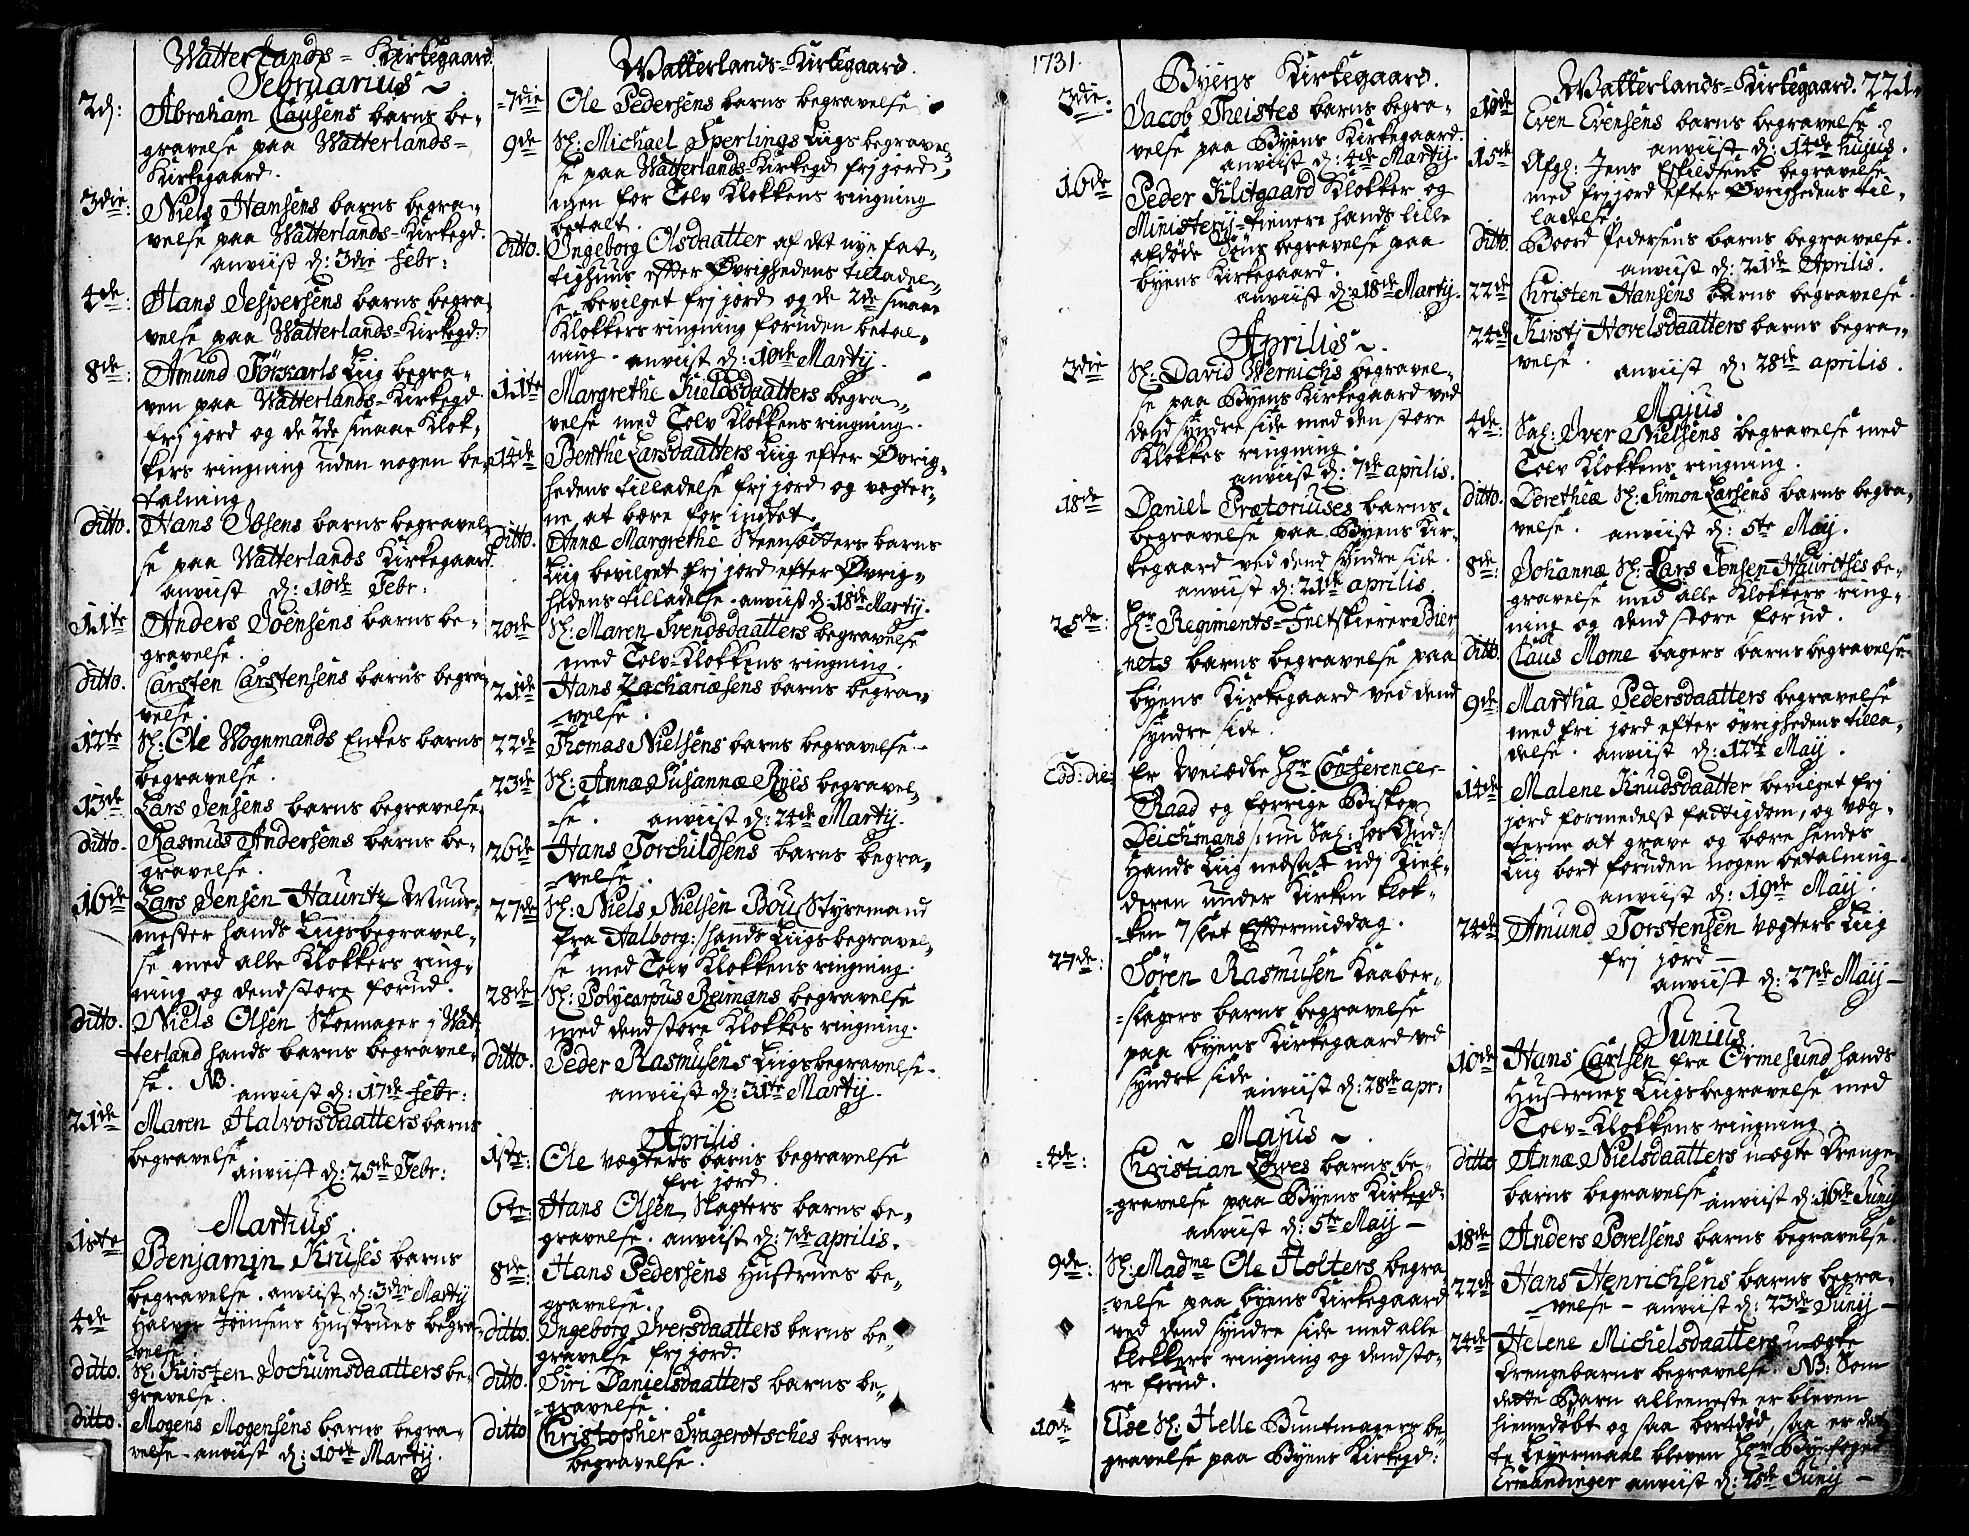 Watterlands = Kirkegaard
Februarius ~
2d: Abraham Clausens barns be-
gravelse paa Watterlands=
Kirkegaard.
3die: Niels Hansens barns begra-
velse paa Watterlands-Kirkegd.
anviist d: 3die Febr:
4de: Hans Jespersens barns begra
velse paa Watterlands-Kirkegd:
8de: Amund Törskarls Liig begra-
ven paa Watterlands-Kirkegd
frj jord og de 2de smaae Klok-
kers ringning uden nogen be-
talning
ditto. Hans Ibsens barns begravel
se paa Watterlands Kirkegaard.
anviist d: 10de Febr:
11te Anders Joensens barns be-
gravelse.
ditto. Carsten Carstensens barns begra
velse.
12te Sl: Ole Wognmands Enkes barns
begravelse.
13de Lars Jensens barns begravelse
ditto. Rasmus Andersens barns be-
gravelse.
16de Lars Jensen Hauritz Muur-
mester hands Liigsbegravel-
se med alle Klokkers ring-
ning og dend store forud.
ditto. Niels Olsen Skoemager j Wat
terland hands barns begravel-
se. NB. anviist d: 17de Febr:
21de Maren Halvorsdaatters barns
begravelse
anviist d: 25de Febr:
Martius.
1ste Benjamin Kruses barns
begravelse. anviist d: 3die Martij
4de Halvor Jöensens Hustrues begra-
velse.
ditto. Sl: Kirsten Jochumsdaatters be-
gravelse.
ditto. Mogens Mogensens barns begra-
velse. anviist d: 10de Martij.
Watterlands-Kirkegaard.
7die Ole Pedersens barns begravelse.
9de Sl: Michael Sperlings Liigs begravel-
se paa Watterlands-Kirkegd frj jord,
men for Tolv Klokkens ringning
betalt.
ditto. Ingeborg Olsdaatter af det nye Fat-
tighuus efter Øvrighedens tilladel-
se bevilget frj jord og de 2de smaae
Klokkers ringning foruden betal-
ning. anviist d: 10de Martij.
11te Margrethe Kieldsdaatters begra-
velse med Tolv Klokkens ringning.
14de Benthe Larsdaatters Liig efter Øvrig-
hedens tilladelse frj jord og vegter-
ne at bære for intet.
ditto. Anna Margrethe Steensætters barns
Liig bevilget frj jord efter Øvrig-
hedens tilladelse. anviist d: 18de Martij.
20de Sl: Maren Svendsdaatters begravelse
med Tolv-Klokkens ringning.
21de Hans Zachariæsens barns begra-
velse.
22de Thomas Nielsens barns begravelse.
23de Sl: Anna Susanna Ryes begravel-
se. anviist d: 24de Martij.
26de Hans Torchildsens barns begra-
velse.
27de Sl: Niels Nielsen Bou Styremand
fra Aalborg: hands Liigsbegravel-
se med Tolv Klokkens ringning.
28de Sl: Polycarpus Reimans begravelse
med dend store Klokkes ringning.
ditto. Peder Rasmusens Liigsbegravelse.
anviist d: 31te Martij.
Aprilis
1ste: Ole vægters barns begravelse
fri jord.
6te Hans Olsen Slagters barns be-
gravelse. anviist d: 7de aprilis.
8de: Hans Pedersens Hustrues be-
gravelse.
ditto. Ingeborg Iversdaatters barns be-
gravelse frj jord.
ditto. Siri Danielsdaatters barns be-
gravelse.
ditto Christopher Tragerotsches barns
begravelse.
1731. Byens Kirkegaard.
3die: Jacob Theistes barns begra-
velse paa Byens Kirkegaard.
anviist d: 4de Martij.
16de Peder Klitgaard Klokker og
Ministerij-tienere hands lille
afdøde Søns begravelse paa
byens Kirkegaard.
anviist d: 18de Martij.
Aprilis ~.
3die Sl: David Wernichs begravel-
se paa Byens Kirkegaard ved
dend syndre side med den store
Klokkes ringning.
anviist d: 7de aprilis.
18de Daniel Prætoriuses barns
begravelse paa Byens Kir-
kegaard ved dend syndre side.
anviist d: 21de aprilis
25de: Hr Regiments-Feltskierer Bier-
nets barns begravelse paa
byens Kirkegaard ved dend
syndre side.
Eod: die: Er Welædle Hr Conference-
Raad og forrige Biskop
Deichmans /: nu Sal: hos Gud :/
Hands Liig nedsatt udj Kiel-
deren under Kirken Klok-
ken 7 slet Eftermiddag.
27de: Sören Rasmusen Kaaber-
slagers barns begravelse
paa byens Kirkegaard ved
syndre side
anviist d: 28de apr:
~ Majus ~.
4de: Christian Löwes barns be-
gravelse paa Byens Kirkegd:
anviist d: 5te Maij —
9de: Sl: Madme Ole Holters begra
velse paa byens Kirkegaard
ved dend syndre side med alle
klokkers ringning og dend sto-
re forud.
10de Else Sl: Helle Buntmagers be
gravelse paa Byens Kirkegd:
Watterlands-Kirkegaard. 221.
10de Even Evensens barns begravelse.
anviist d: 14de hujus.
15de Afg: Jens Eskildsens begravelse
med frj jord efter Øvrighedens til-
ladelse.
ditto Boord Pedersens barns begravelse.
anviist d: 21de Aprilis.
22de Christen Hansens barns begravelse.
24de Kirstj Hovelsdaatters barns begra-
velse. anviist d: 28de aprilis.
Majus.
4de: Sal: Iver Nielsens begravelse med
Tolv Klokkens ringning.
ditto. Dorothea Sl: Simon Larsens barns begra-
velse. anviist d: 5te Maij.
8de: Johanna Sl: Lars Jensen Hauritses be-
gravelse med alle Klokkers ring-
ning og dend store forud.
ditto. Claus Mome bagers barns begravelse.
9de Martha Pedersdaatters begravelse
med fri jord efter øvrighedens tilla-
delse. anviist d: 12te Maij.
14de Malene Knudsdaatter bevilget frj
jord formedelst fattigdom, og Væg-
terne at grave og bære hendes
Liig bort foruden nogen betalning.
anviist d: 19de Maij.
24de Amund Torstensen vægters Liig
frj jord —
anviist d: 27de Maij —
Junius
10de Hans Carlsen fra Ormesund hands
Hustrues Liigsbegravelse med
Tolv-Klokkens ringning
ditto Anna Nielsdaatters uægte Drenge
barns begravelse anviist d: 16de Junij
18de Anders Povelsens barns begravelse.
22de Hans Henrichsens barns begra-
velse — anviist d: 23de Junij —
24de Helene Michelsdaatters uægte
Drengebarns begravelse. NB: Som
dette Barn alleeneste er bleven
hiemedöbt og saa bortdöd, saa er det
te Leyermaal bleven Hr Byefoged
Ermandinger anviist d: 25de Junij —